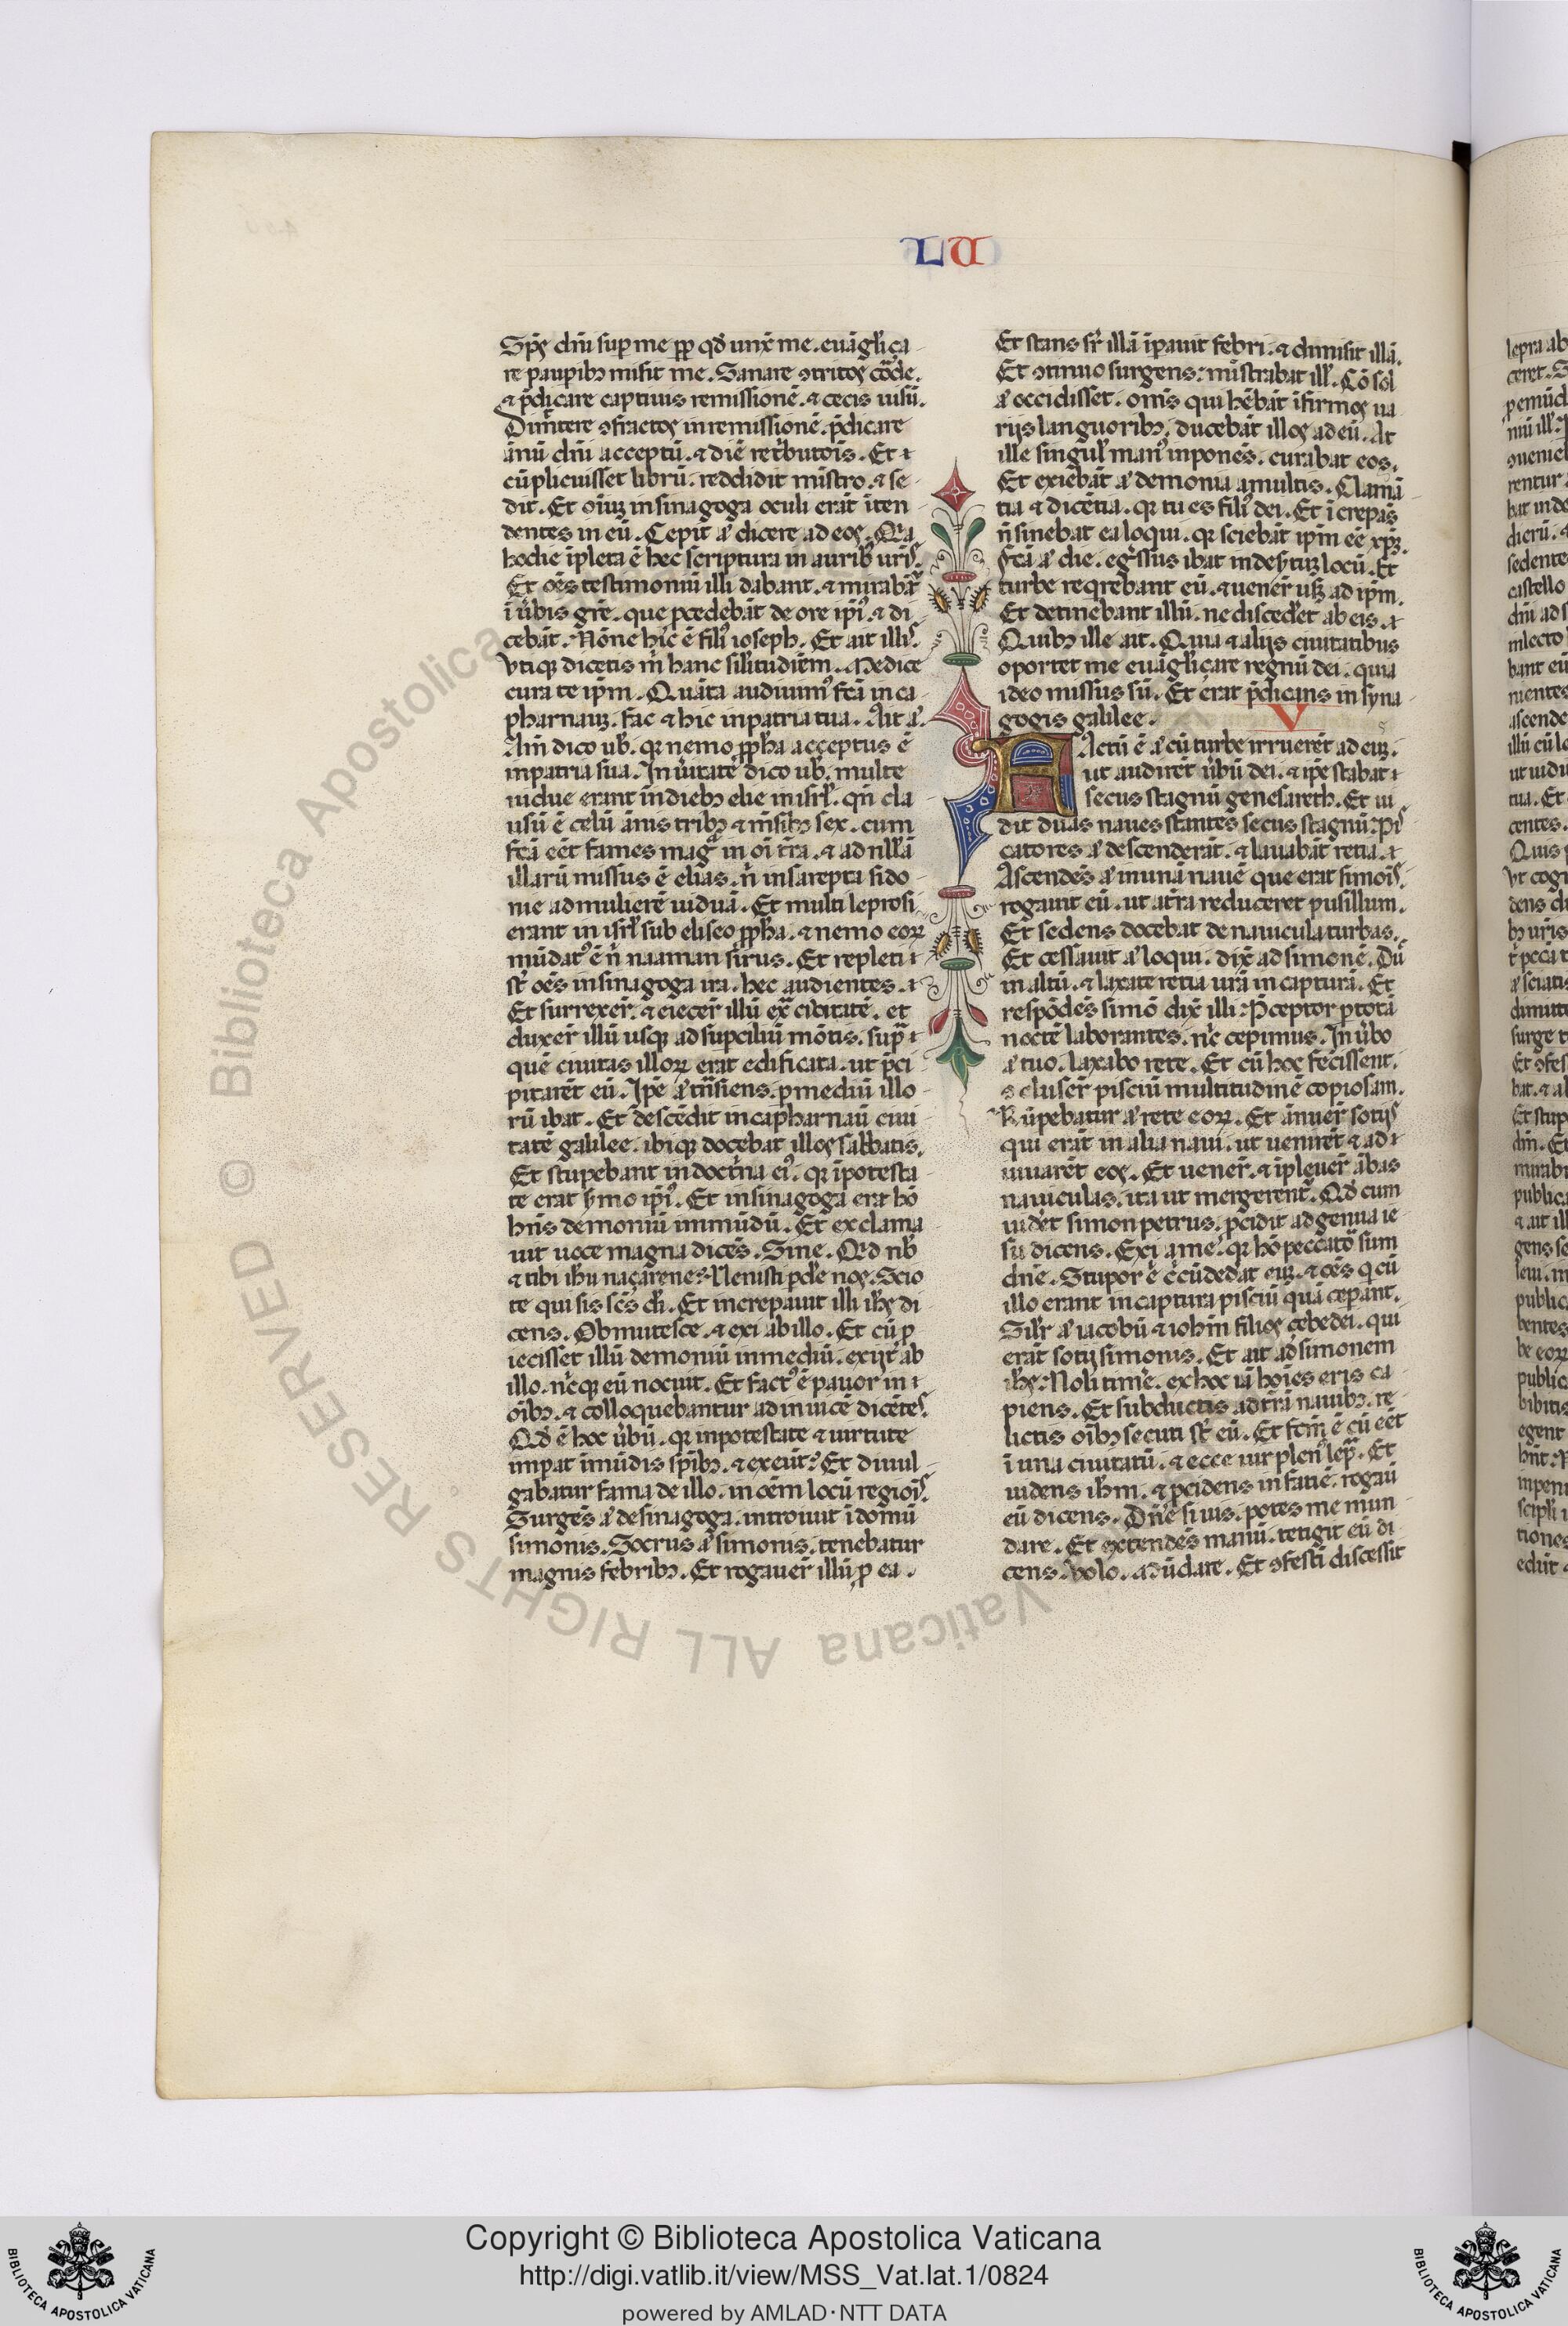 LU
Spꝰ dñi suꝑ me ꝓp qđ unx̄ me. euāgliça
re pauꝑibꝫ misit me. Sanare ꝯtritos cōꝛde.
⁊ p̄dicare captiuis remissionē. ⁊ cecis uisū.
Dimittere ꝯfractos in remissionē. p̄dicare
ānū dn̄i acceptū. ⁊ diē ret̄butōis. Et
cū plicuisset librū. reddidit mīstro. ⁊ se
dit. Et oīuꝫ in sinagoga oculi erāt īten
dentes in eū. Cepit aʼ dicere ad eos. Qꝛa
hodie īpleta ē hec scriptura in auribꝰ uris.
Et oēs testimoniū illi dabant. ⁊ mirabāt̄
ī ūbis grē. que ꝓcedebāt de ore ipīꝰ. ⁊ di
cebāt. Nōne hic ē filiꝰ ioseph. Et ait illis.
Utiqꝫ dicetis m̄ hanc sīlitudiēm. Medice
cura te ip̄m. Quāta audiuimꝰ fcā in ca
pharnauꝫ. fac ⁊ hic in patria tua. Ait aʼ.
Am̄ dico uƀ. qꝛ nemo ꝓpħa acceptus ē
in patria sua. In ūitate dico uƀ. multe
uidue erant in diebꝫ elie in isrl̄. qn̄ clau
usū ē celū ānis tribꝫ ⁊ mēsibꝫ sex. cum
fcā eēt fames magᵃ in oī t̄ra. ⁊ ad nllā
illarū missus ē elias. n̄ in sarepta sido
nie ad mulierē uiduā. Et multi leprosi
erant in isrl̄ sub eliseo ꝓpħa. ⁊ nemo eoꝝ
mūdatꝰ ē n̄ naaman sirus. Et repleti
st̄ oēs in sinagoga ira. hec audientes.
Et surrexer̄. ⁊ eiecer̄ illū ex̄ᵃ ciuitatē. et
duxer̄ illū usqꝫ ad supciliū mōtis. supᵃ
quē ciuitas illoꝝ erat edificata. ut p̄ci
pitarēt eū. Ipe aʼ trāsiens. ꝑ mediū illo
rū ibat. Et descēdit in capharnaū ciui
tatē galilee. ibiqꝫ docebat illos sabbatis.
Et stupebant in doctrīna eiꝰ. qꝛ ī potesta
te erat ẜmo ipīꝰ. Et in sinagoga erat hō
hn̄s demoniū immūdū. Et exclama
uit uoce magna dicēs. Sine. Qđ nƀ
⁊ tibi ihu naçarene? Uenisti pd̄e nos. Scio
te qui sis scs̄ di. Et increpauit illi ihs di
cens. Obmutesce. ⁊ exi ab illo. Et cū ꝓ
iecisset illū demoniū in mediū. exijt ab
illo. neqꝫ eū nocuit. Et factꝰ ē pauor in
oībꝫ. ⁊ colloquebantur ad inuicē dicētes.
Qđ ē hoc ūbū. qꝛ in potestate ⁊ uirtute
imꝑat īmūdis sp̄ibꝫ. ⁊ exeūt? Et diuul
gabatur fama de illo. in oēm locū regiois.
Surgēs aʼ de sinagoga. introiuit ī domū
simonis. Socrus aʼ simonis. tenebatur
magnis febribꝫ. Et rogauer̄ illū ꝓ ea.
Et stans sr̄ illā īꝑauit febri. ⁊ dimisit illā.
Et ꝯtinuo surgens: mīstrabat ill̄. Cō sol
aʼ occidisset. omīs qui hēbāt īfirmos ua
rijs languoribꝫ. ducebāt illos ad eū. At
ille singul̄ manꝰ inpones. curabat eos.
Et exiebāt aʼ demonia a multis. Clamā
tia ⁊ dicētia. qꝛ tu es filiꝰ dei. Et īcrepās
n̄ sinebat ea loqui. qꝛ sciebāt ip̄m eē xp̄ꝫ.
Fcā aʼ die. eg̅ssus ibat in desʼtuꝫ locū. Et
turbe reqrebant eū. ⁊ uener̄ usqꝫ ad ip̄m.
Et detinebant illū. ne discedet̄ ab eis.
Quibꝫ ille ait. Quia ⁊ alijs ciuitatibus
oportet me euāglicare regnū dei. quia
ideo missus sū. Et erat p̄dicans in syna
gogis galilee. V
FActū ē aʼ cū turbe irruerēt ad euꝫ.
ut audirēt ūbū dei. ⁊ ipe stabat
secus stagnū genesareth. Et ui
dit duas naues stantes secus stagnū: pis
catores aʼ descenderāt. ⁊ lauabāt retia.
Ascendēs aʼ in unā nauē que erat simois.
rogauit eū. ut a t̄ra reduceret pusillum.
Et sedens docebat de nauicula turbas.
Et cessauit aʼ loqui. dix̄ ad simonē. Duc
in altū. ⁊ laxate retia urā in capturā. Et
respōdēs simō dix̄ illi: P̄ceptor ꝑ totā
noctē laborantes. nic̄ cepimus. In ūbo
aʼ tuo. laxabo rete. Et cū hoc fecissent.
ꝯcluser̄ pisciū multitudinē copiosam.
Rūpebatur aʼ rete eoꝝ. Et ānuer̄ sotijs
qui erāt in alia naui. ut uenirēt ⁊ ad
iuuarēt eos. Et uener̄. ⁊ īpleuer̄ ābas
nauiculas. ita ut mergerent̄. Qđ cum
uidet̄ simon petrus. ꝓcidit ad genua ie
su dicens. Exi a me. qꝛ hō peccatoꝛ sum
dn̄e. Stupor ē c̄cūdedʼat euꝫ. ⁊ oēs q cū
illo erant in captura pisciū quā ceꝑant.
Silr̄ aʼ iacobū ⁊ iohm̄ filios çebedei. qui
erāt sotij simonis. Et ait ad simonem
ihs: Noli timē. ex hoc iā hoies eris ca
piens. Et subductis ad t̄rā nauibꝫ. re
lictis oībꝫ secuti st̄ eū. Et fcm̄ ē cū eēt
ī una ciuitatū. ⁊ ecce uir plenꝰ lepᵃ. Et
uidens ihm̄. ⁊ ꝓcidens in fatiē. rogaū
eū dicens. Dn̄e si uis. potes me mun
dare. Et extendēs manū. tetigit eū di
cens. Uolo. Mūdare. Et ꝯfesti discessit
Copyright © Biblioteca Apostolica Vaticana
http://digi.vatlib.it/view/MSS_Vat.lat.1/0824
powered by AMLAD·NTT DATA
BIBLIOTECA APOSTOLICA VATICANA
BIBLIOTECA APOSTOLICA VATICANA
© Biblioteca Apostolica Vaticana ALL RIGHTS RESERVED